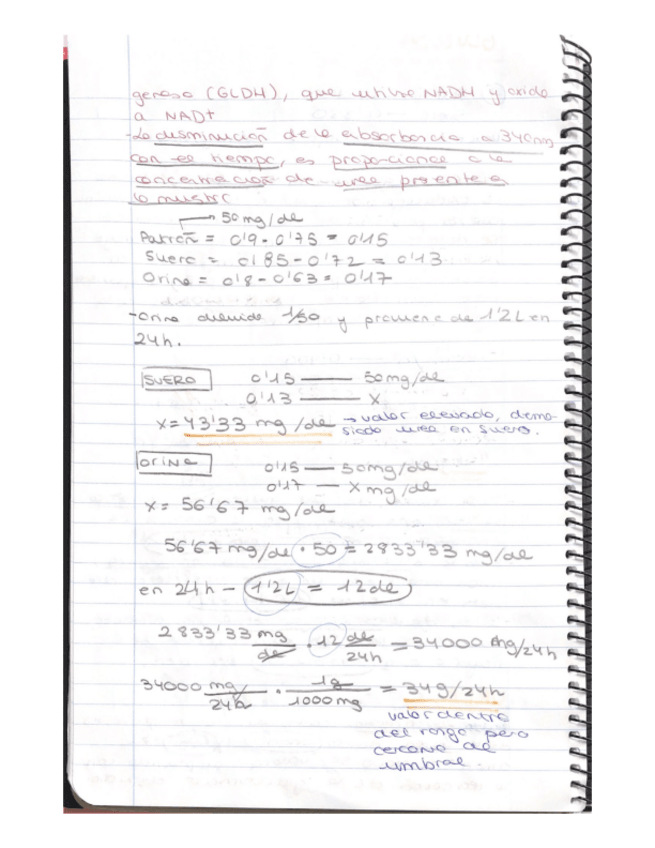 genasa (GLDH), que utiliza NADH y oxida
a NAD+
-La disminución de la absorbancia a 340nm
con el tiempo, es proporcional a la
concentración de urea presente e
la muestra
→ 50 mg/dl
Patrón = 0'9 - 0'75 = 0'15
Suero = 0'85 - 0'72 = 0'13
Orina = 0'8 - 0'63 = 0'17
-Orina diluida 1/50 y proviene de 1'2L en
24h.
SUERO 0'15 —— 50mg/dl
0'13 —— X
X = 43'33 mg/dl → valor elevado, dema-
siada urea en suero.
Orina 0'15 — 50mg/dl
0'17 — X mg/dl
X = 56'67 mg/dl
56'67 mg/dl · 50 = 2833'33 mg/dl
en 24h - 1'2L = 12dl
2833'33 mg/dl · 12 dl/24h = 34000 mg/24h
34000 mg/24h · 1g/1000mg = 34g/24h
valor dentro
del rango pero
cercano al
umbral.